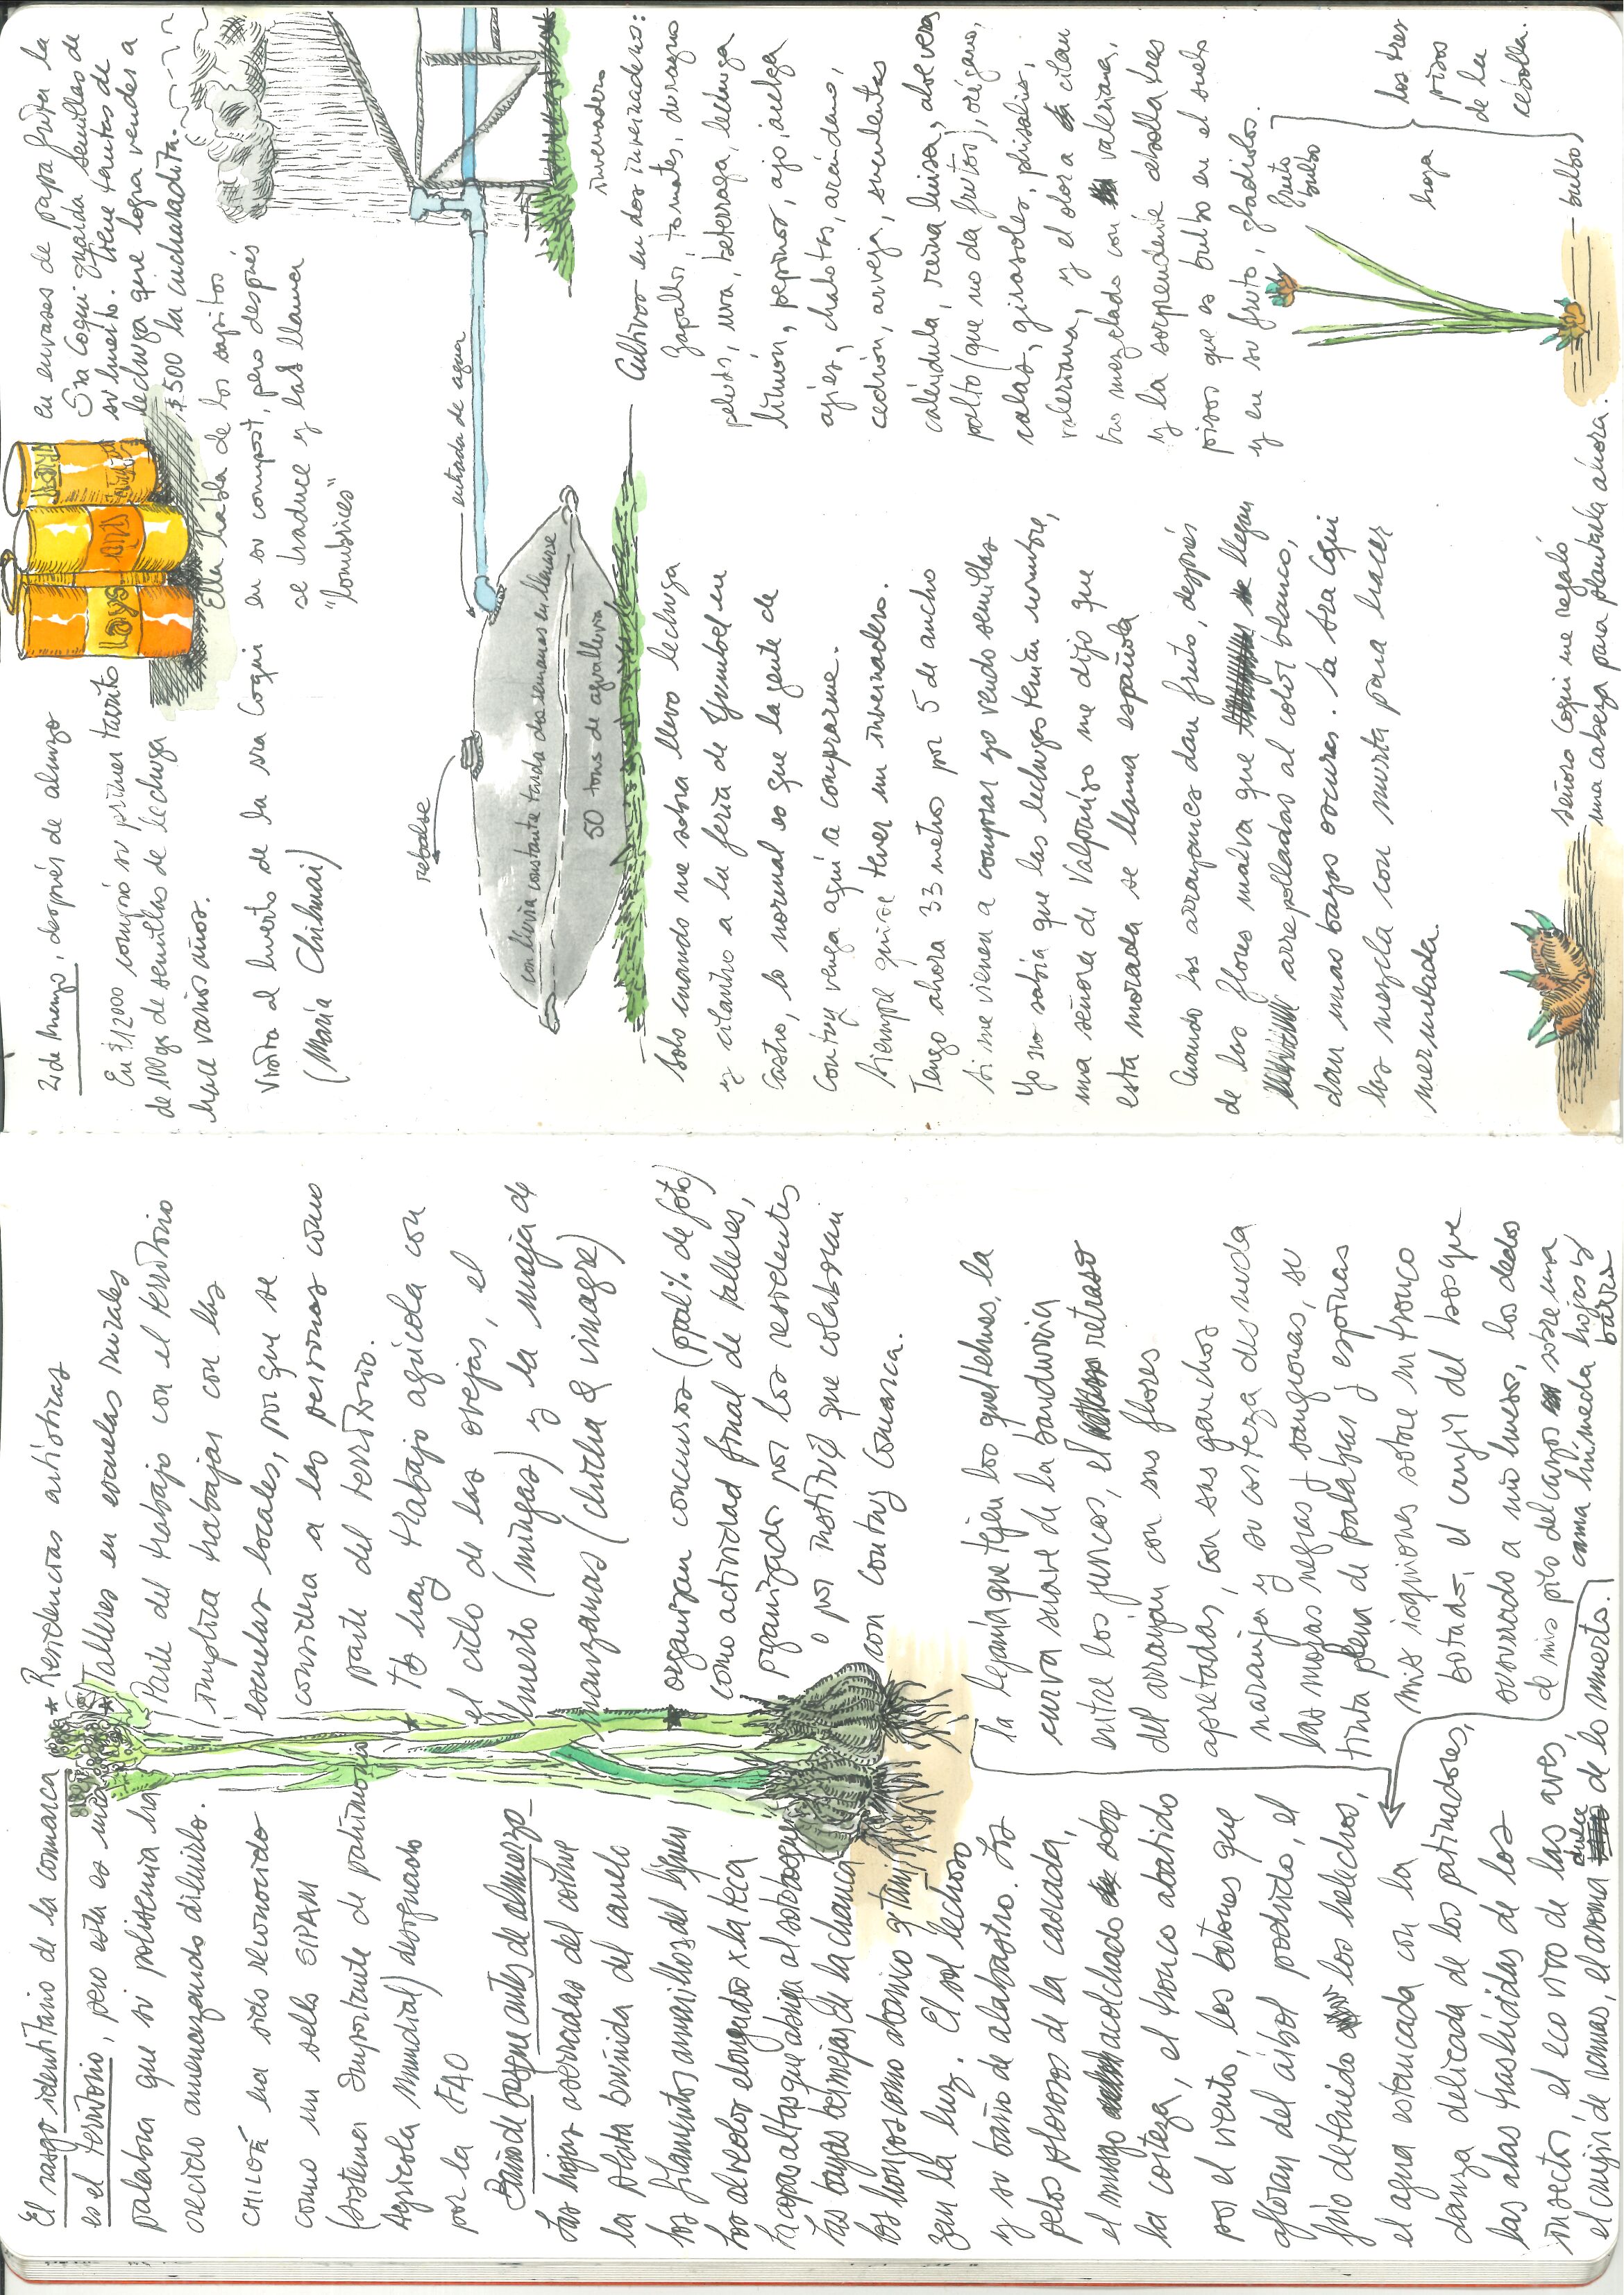 El rasgo identitario de la comarca
es el territorio, pero esta es una
palabra que su polisemia ha
crecido amenazando diluirlo.
CHILOÉ ha sido reconocido
como un sello SIPAM
(Sistema Importante de patrimonio
Agrícola Mundial) designado
por la FAO
Baño de bosque antes de almuerzo
Las hojas aserradas del coihue
la plata bruñida del canelo
los filamentos amarillos del liquen
Los alveolos elongados x la teca
La copas altas que abriga al sotobosque
Las bayas bermejas de la chauca
los hongos como abanico q tami
zan la luz. El sol lechoso
y su baño de alabastro. Los
pelos plorosos de la cascada,
el musgo acolchado sobre
la corteza, el tronco abatido
por el viento, los botones que
afloran del árbol podrido, el
frío detenido los helechos,
el agua estancada con la
danza delicada de los patinadores,
las alas traslúcidas de los
insectos, el eco vivo de las aves,
el crujir de ramas, el aroma dulce de lo muerto.
★ Residencias artísticas
★ Talleres en escuelas rurales
Parte del trabajo con el territorio
implica trabajar con las
escuelas locales, porque se
considera a las personas como
parte del territorio.
★ Tb hay trabajo agrícola con
el ciclo de las ovejas, el
huerto (mingas) y la maja de
manzanas (chicha & vinagre)
★ organizan concursos (ppal% de foto)
como actividad final de talleres,
organizados por los residentes
o por que colaboran
con Contuy Comarca.
la lejanía que tejen los queltehues, la
curva suave de la bandurria
entre los juncos, el retraso
del arrayán con sus flores
apretadas, con sus ganchos
naranja y su corteza desnuda
las moras negras y sangronas, su
tinta plena de palabras y espinas
mis isquiones sobre un tronco
botado, el crujir del bosque
susurrado a mis huesos, los dedos
de mis pies descalzos sobre una
cama húmeda hojas y
barro
2 de Marzo, después de almuerzo
En $12000 compró su primer tarrito
de 100gs de semillas de lechuga
hace varios años.
Visita al huerto de la sra Coqui
(María Chihuai)
Lays
En envases de papa frita la
Sra Coqui guarda semillas de
su huerto. Tiene tantas de
lechuga que logra vender a
$500 la cucharadita.
Ella habla de los sapitos
en su compost, pero después
se traduce y las llama
"lombrices"
rebalse
entrada de agua
con lluvia constante tarda dos semanas en llenarse
50 tons de agualluvia
invernadero
Solo cuando me sobra llevo lechuga
y cilantro a la feria de Yumbel en
Castro, lo normal es que la gente de
Contuy venga aquí a comprarme.
Siempre quise tener un invernadero.
Tengo ahora 33 metros por 5 de ancho
Si me vienen a comprar yo vendo semillas
Yo no sabía que las lechugas tenían nombre,
una señora de Valparaíso me dijo que
esta morada se llama española
Cuando los arrayanes dan fruto, después
de las flores malva que llegan
arrepolladas al color blanco,
dan unas bayas oscuras. La Sra Coqui
las mezcla con murta para hacer
mermelada.
Señora Coqui me regaló
una cabeza para plantarla ahora.
Cultivos en dos invernaderos:
Zapallos, tomates, durazno
pelado, uva, beterraga, lechuga
limón, pepinos, ajo, acelga
ajíes, chalotas, arándano,
cedrón, arveja, suculentas
caléndula, reina luisa, aloe vera
palto (que no da frutos), orégano,
calas, girasoles, phisalis,
valeriana, y el olor a cilan
tro mezclado con valeriana,
y la sorprendente cebolla tres
pisos que es bulbo en el suelo
y en su fruto, gladiolos.
fruto
bulbo
hoja
bulbo
los tres
pisos
de la
cebolla.